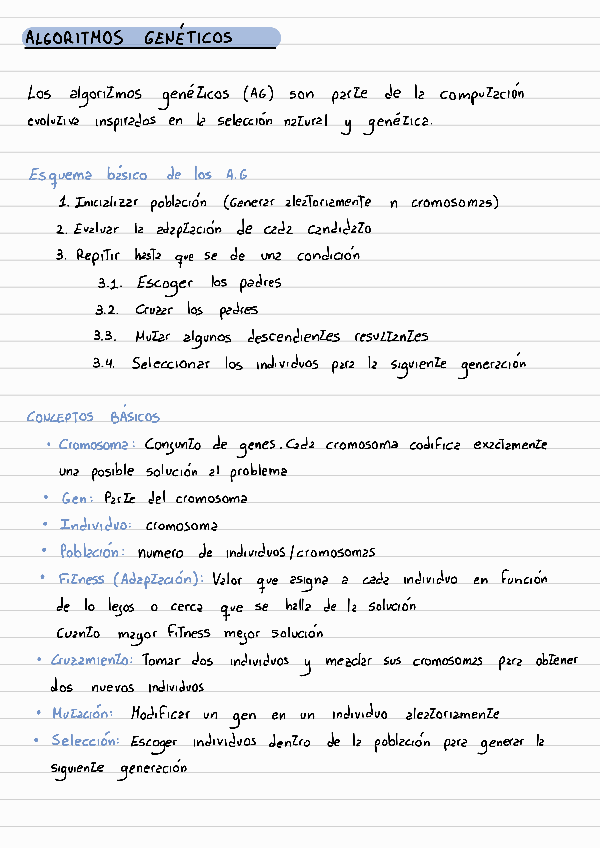 ALGORITMOS GENÉTICOS
Los algoritmos genéticos (AG) son parte de la computación
evolutiva inspirados en la selección natural y genética.
Esquema básico de los A.G
1. Inicializar población (Generar aleatoriamente n cromosomas)
2. Evaluar la adaptación de cada candidato
3. Repitir hasta que se de una condición
3.1. Escoger los padres
3.2. Cruzar los padres
3.3. Mutar algunos descendientes resultantes
3.4. Seleccionar los individuos para la siguiente generación
CONCEPTOS BÁSICOS
• Cromosoma: Conjunto de genes. Cada cromosoma codifica exactamente
una posible solución al problema
• Gen: Parte del cromosoma
• Individuo: cromosoma
• Población: numero de individuos/cromosomas
• Fitness (Adaptación): Valor que asigna a cada individuo en función
de lo lejos o cerca que se halla de la solución
Cuanto mayor fitness mejor solución
• Cruzamiento: Tomar dos individuos y mezclar sus cromosomas para obtener
dos nuevos individuos
• Mutación: Modificar un gen en un individuo aleatoriamente
• Selección: Escoger individuos dentro de la población para generar la
siguiente generación